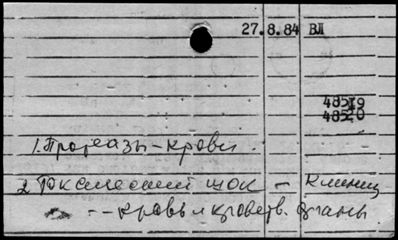 27.8.84 ВЛ
48519
48520
1. Протеазы – крови
2. Токсический шок – клиниц
-- кровь и кроветв. органы